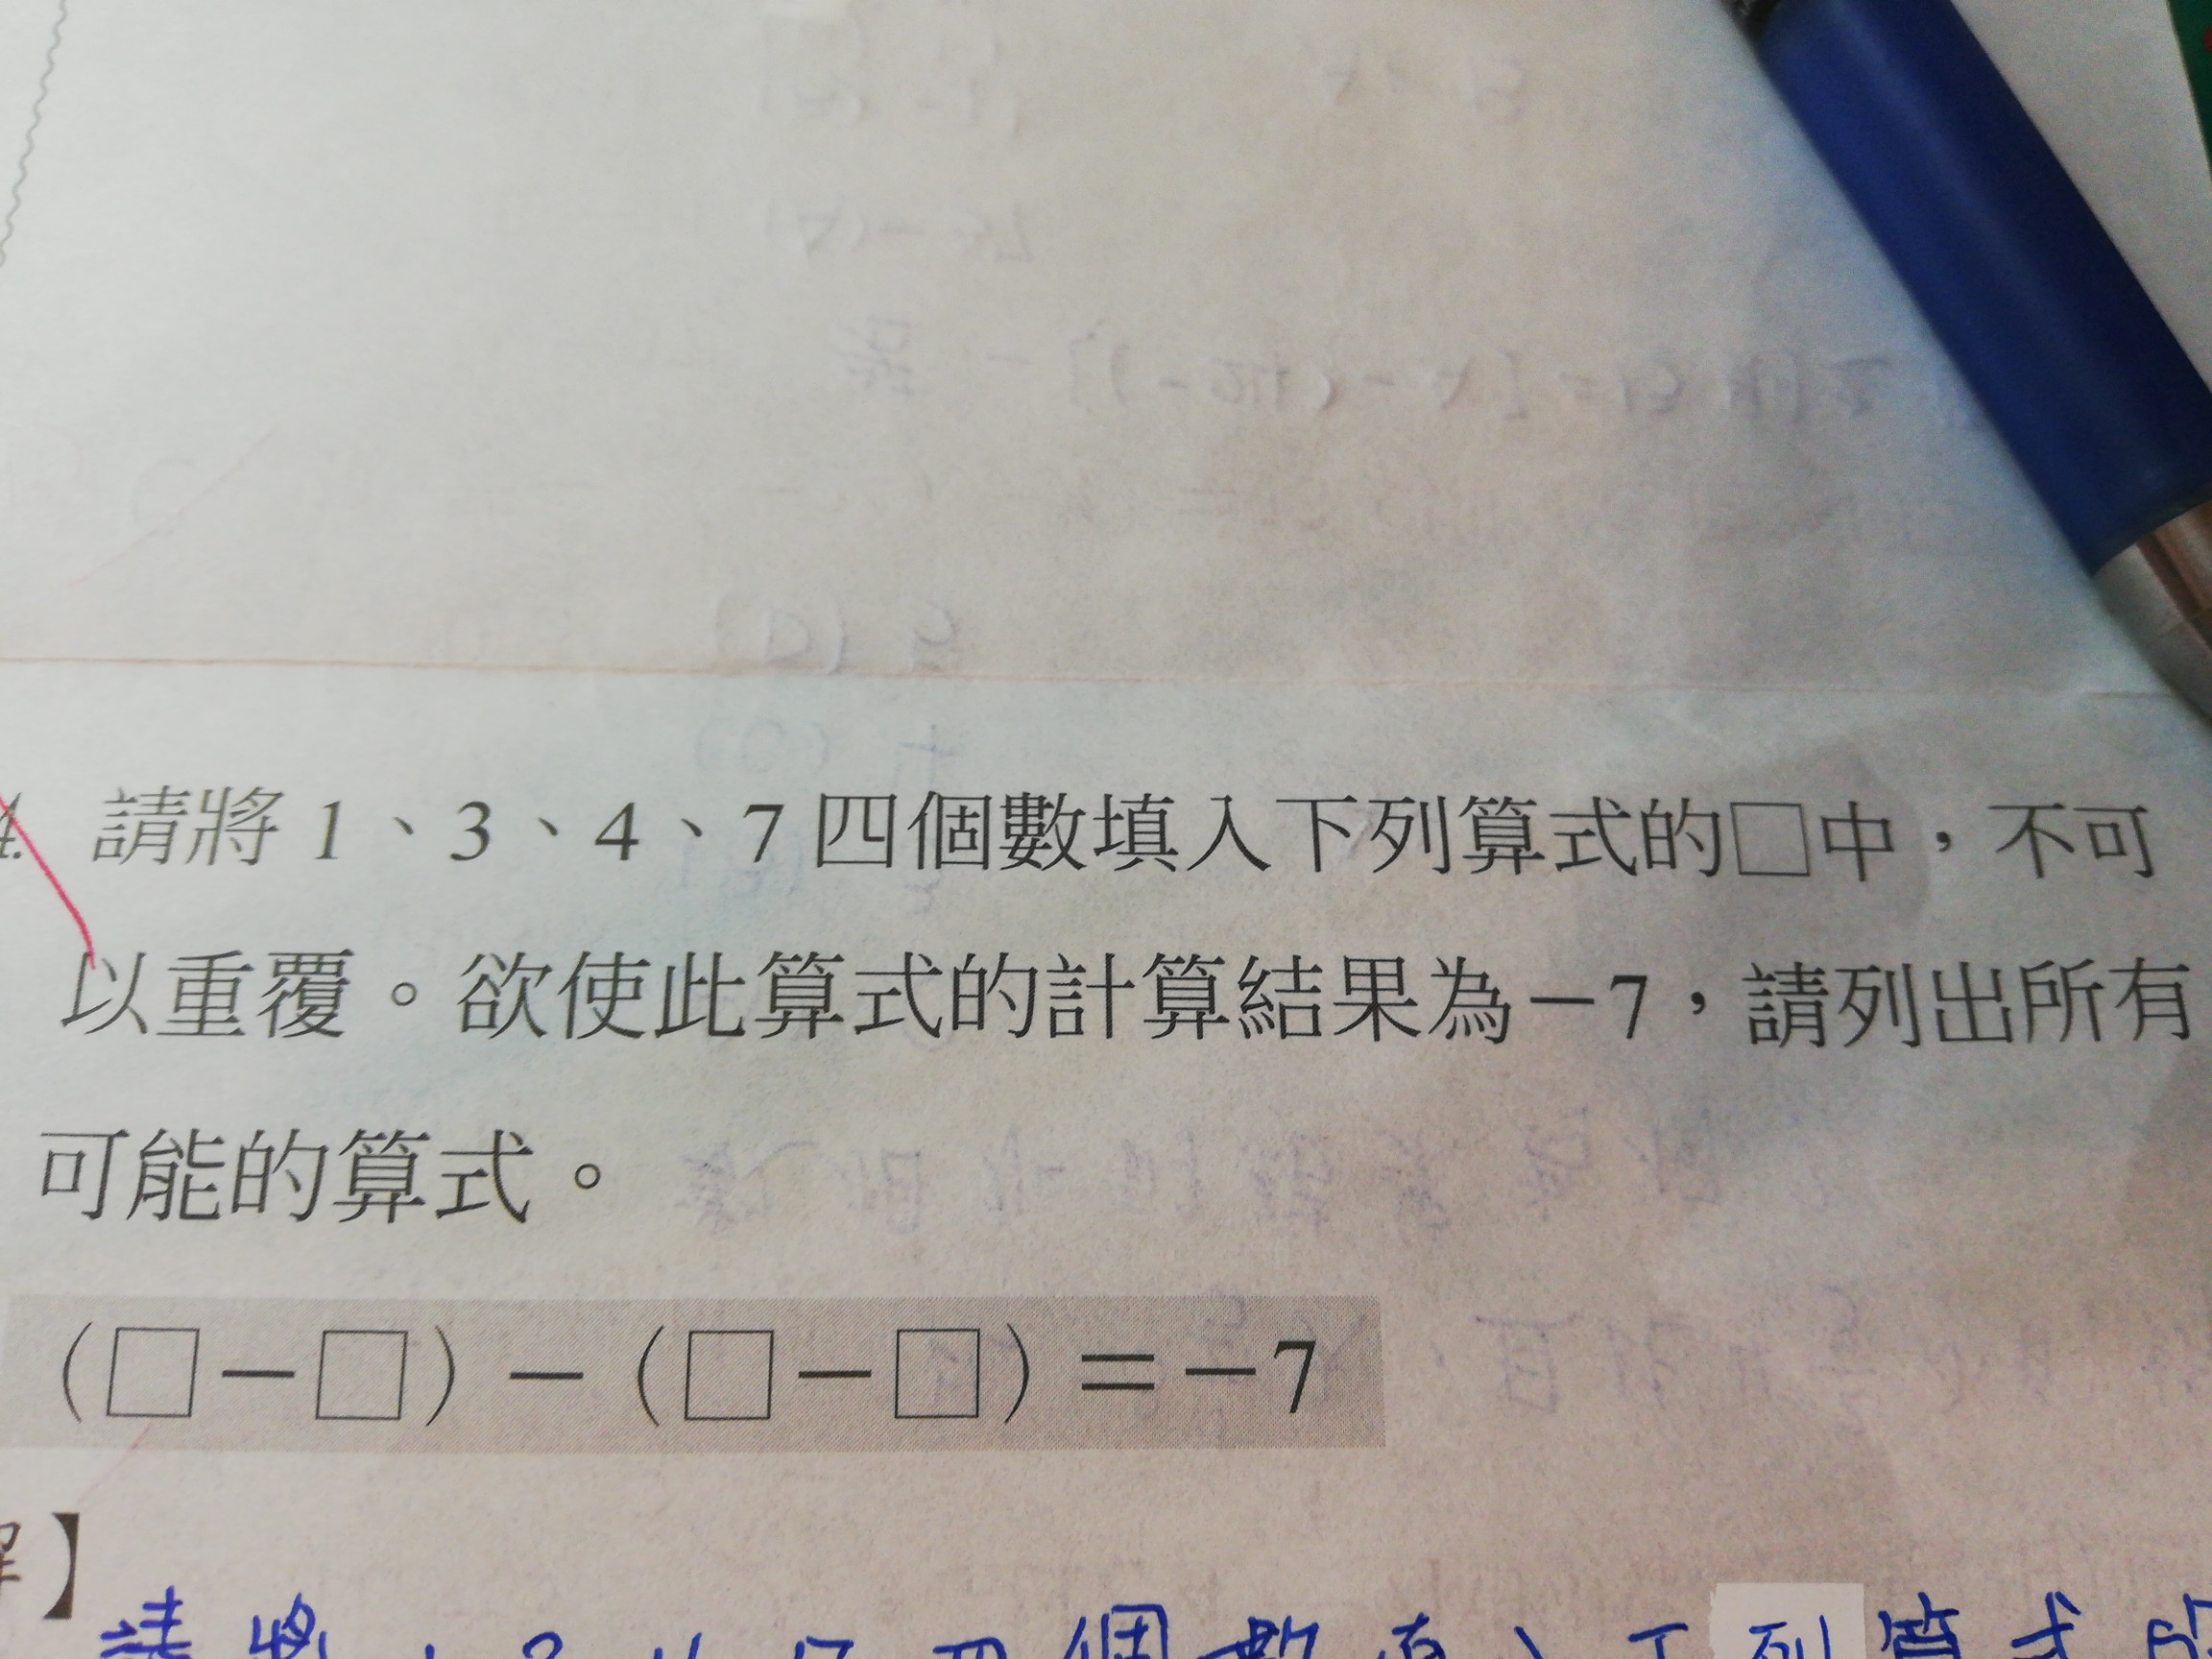 4. 請將 1、3、4、7 四個數填入下列算式的□中，不可
以重覆。欲使此算式的計算結果為－7，請列出所有
可能的算式。
（□－□）－（□－□）＝－7
解】
請將 四個數 列算式的